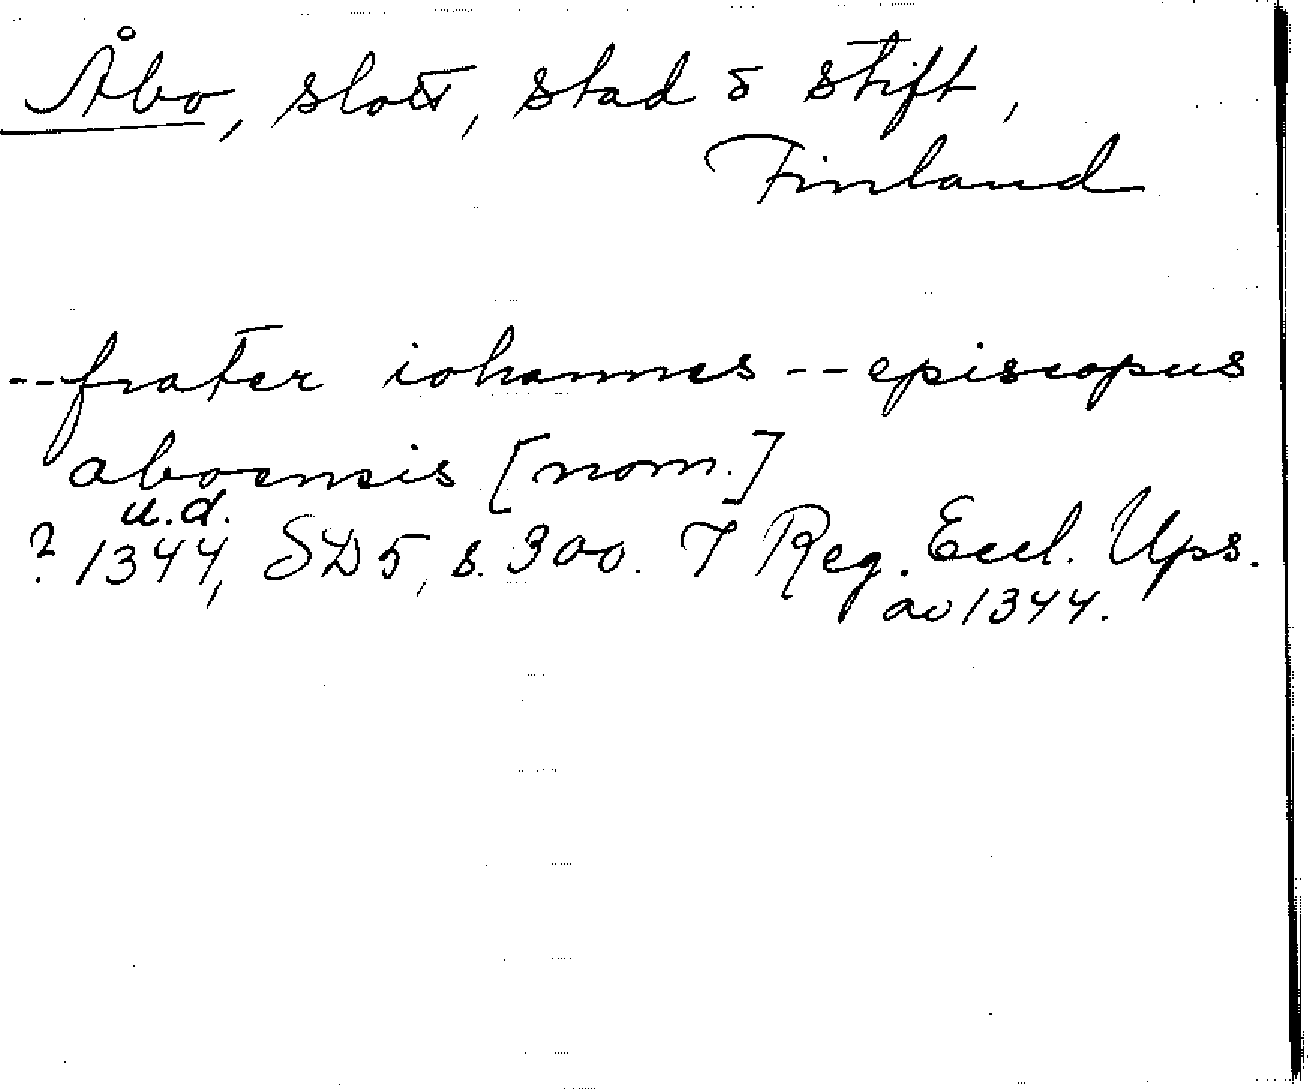 Åbo, slott, stad o stift,
Finland
--frater iohannes -- episcopus
aboensis [nom.]
u.d.
? 1344, SD 5, s. 300. I Reg. Eccl. Ups.
av 1344.